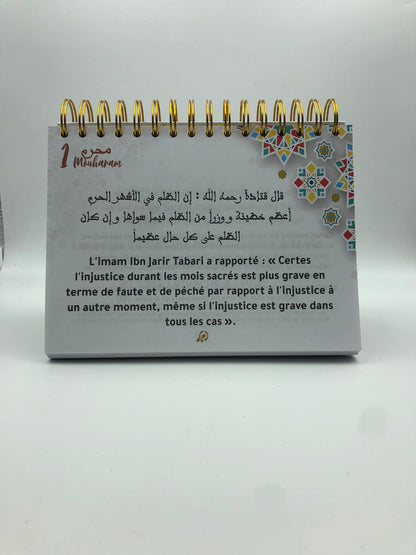 1 محرم
Mouharam
قال قتادة رحمه الله : إن الظلم في الأشهر الحرم
أعظم خطيئة و وزرا من الظلم فيما سواها و إن كان
الظلم على كل حال عظيما
L'imam Ibn Jarir Tabari a rapporté : « Certes
l'injustice durant les mois sacrés est plus grave en
terme de faute et de péché par rapport à l'injustice à
un autre moment, même si l'injustice est grave dans
tous les cas ».